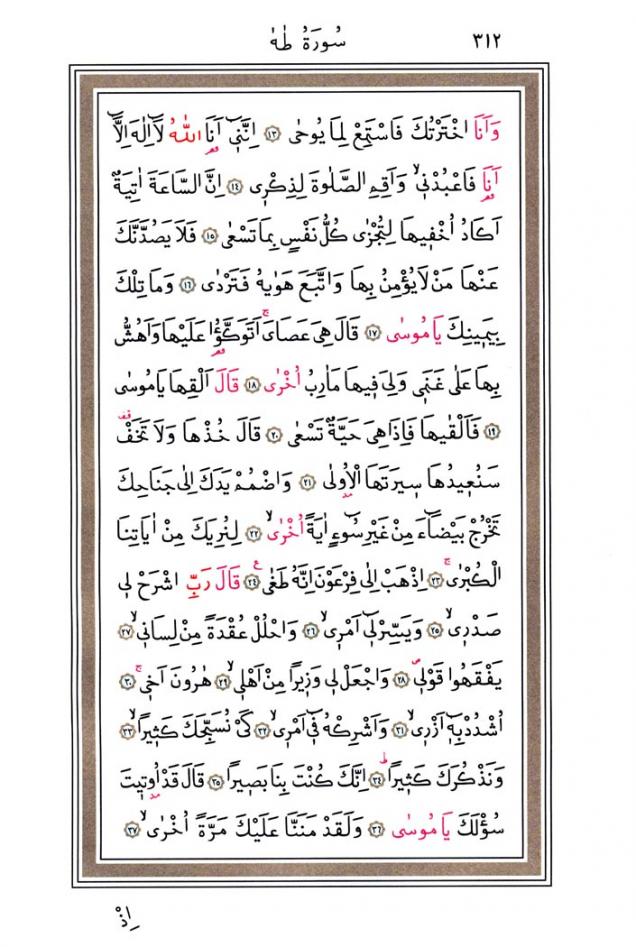 سُورَةُ طٰهٰ ٣١٢
وَاَنَا اخْتَرْتُكَ فَاسْتَمِعْ لِمَا يُوحٰى ﴿١٣﴾ اِنَّنٖٓى اَنَا اللّٰهُ لَٓا اِلٰهَ اِلَّٓا
اَنَا۬ فَاعْبُدْنٖىۙ وَاَقِمِ الصَّلٰوةَ لِذِكْرٖى ﴿١٤﴾ اِنَّ السَّاعَةَ اٰتِيَةٌ
اَكَادُ اُخْفٖيهَا لِتُجْزٰى كُلُّ نَفْسٍ بِمَا تَسْعٰى ﴿١٥﴾ فَلَا يَصُدَّنَّكَ
عَنْهَا مَنْ لَا يُؤْمِنُ بِهَا وَاتَّبَعَ هَوٰيهُ فَتَرْدٰى ﴿١٦﴾ وَمَا تِلْكَ
بِيَمٖينِكَ يَا مُوسٰى ﴿١٧﴾ قَالَ هِىَ عَصَاىَۚ اَتَوَكَّؤُ۬ا عَلَيْهَا وَاَهُشُّ
بِهَا عَلٰى غَنَمٖى وَلِىَ فٖيهَا مَاٰرِبُ اُخْرٰى ﴿١٨﴾ قَالَ اَلْقِهَا يَا مُوسٰى
﴿١٩﴾ فَاَلْقٰيهَا فَاِذَا هِىَ حَيَّةٌ تَسْعٰى ﴿٢٠﴾ قَالَ خُذْهَا وَلَا تَخَفْ۠
سَنُعٖيدُهَا سٖيرَتَهَا الْاُو۫لٰى ﴿٢١﴾ وَاضْمُمْ يَدَكَ اِلٰى جَنَاحِكَ
تَخْرُجْ بَيْضَٓاءَ مِنْ غَيْرِ سُٓوءٍ اٰيَةً اُخْرٰىۙ ﴿٢٢﴾ لِنُرِيَكَ مِنْ اٰيَاتِنَا
الْكُبْرٰىۚ ﴿٢٣﴾ اِذْهَبْ اِلٰى فِرْعَوْنَ اِنَّهُ طَغٰى ﴿٢٤﴾ ع قَالَ رَبِّ اشْرَحْ لٖى
صَدْرٖىۙ ﴿٢٥﴾ وَيَسِّرْ لٖٓى اَمْرٖىۙ ﴿٢٦﴾ وَاحْلُلْ عُقْدَةً مِنْ لِسَانٖىۙ ﴿٢٧﴾
يَفْقَهُوا قَوْلٖىۖ ﴿٢٨﴾ وَاجْعَلْ لٖى وَزٖيرًا مِنْ اَهْلٖىۙ ﴿٢٩﴾ هٰرُونَ اَخٖىۚ ﴿٣٠﴾
اُشْدُدْ بِهٖٓ اَزْرٖىۙ ﴿٣١﴾ وَاَشْرِكْهُ فٖٓى اَمْرٖىۙ ﴿٣٢﴾ كَىْ نُسَبِّحَكَ كَثٖيرًاۙ ﴿٣٣﴾
وَنَذْكُرَكَ كَثٖيرًاؕ ﴿٣٤﴾ اِنَّكَ كُنْتَ بِنَا بَصٖيرًا ﴿٣٥﴾ قَالَ قَدْ اُو۫تٖيتَ
سُؤْلَكَ يَا مُوسٰى ﴿٣٦﴾ وَلَقَدْ مَنَنَّا عَلَيْكَ مَرَّةً اُخْرٰىۙ ﴿٣٧﴾
اِذْ